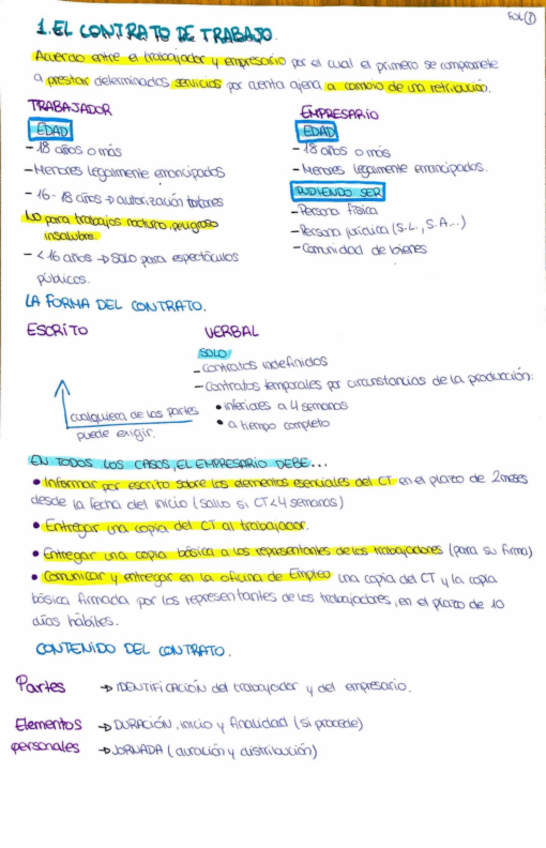 FOL①
1. EL CONTRATO DE TRABAJO.
Acuerdo entre el trabajador y empresario por el cual el primero se compromete
a prestar determinados servicios por cuenta ajena a cambio de una retribución.
TRABAJADOR
EDAD
- 18 años o más
- Menores legalmente emancipados
- 16 - 18 años → autorización tutores
↳ No para trabajos nocturno, peligroso
insalubre.
- < 16 años → SOLO para espectáculos
públicos.
EMPRESARIO
EDAD
- 18 años o más
- Menores legalmente emancipados.
PUDIENDO SER
- Persona física
- Persona jurídica (S.L., S.A...)
- Comunidad de bienes
LA FORMA DEL CONTRATO.
ESCRITO
cualquiera de las partes
puede exigir.
VERBAL
SOLO:
- contratos indefinidos
- contratos temporales por circunstancias de la producción:
• inferiores a 4 semanas
• a tiempo completo
EN TODOS LOS CASOS, EL EMPRESARIO DEBE...
• Informar por escrito sobre los elementos esenciales del CT en el plazo de 2 meses
desde la fecha del inicio (salvo si CT < 4 semanas)
• Entregar una copia del CT al trabajador.
• Entregar una copia básica a los representantes de los trabajadores (para su firma)
• Comunicar y entregar en la oficina de Empleo una copia del CT y la copia
básica firmada por los representantes de los trabajadores, en el plazo de 10
días hábiles.
CONTENIDO DEL CONTRATO.
Partes → IDENTIFICACIÓN del trabajador y del empresario.
Elementos → DURACIÓN, inicio y finalidad (si procede)
personales → JORNADA (duración y distribución)